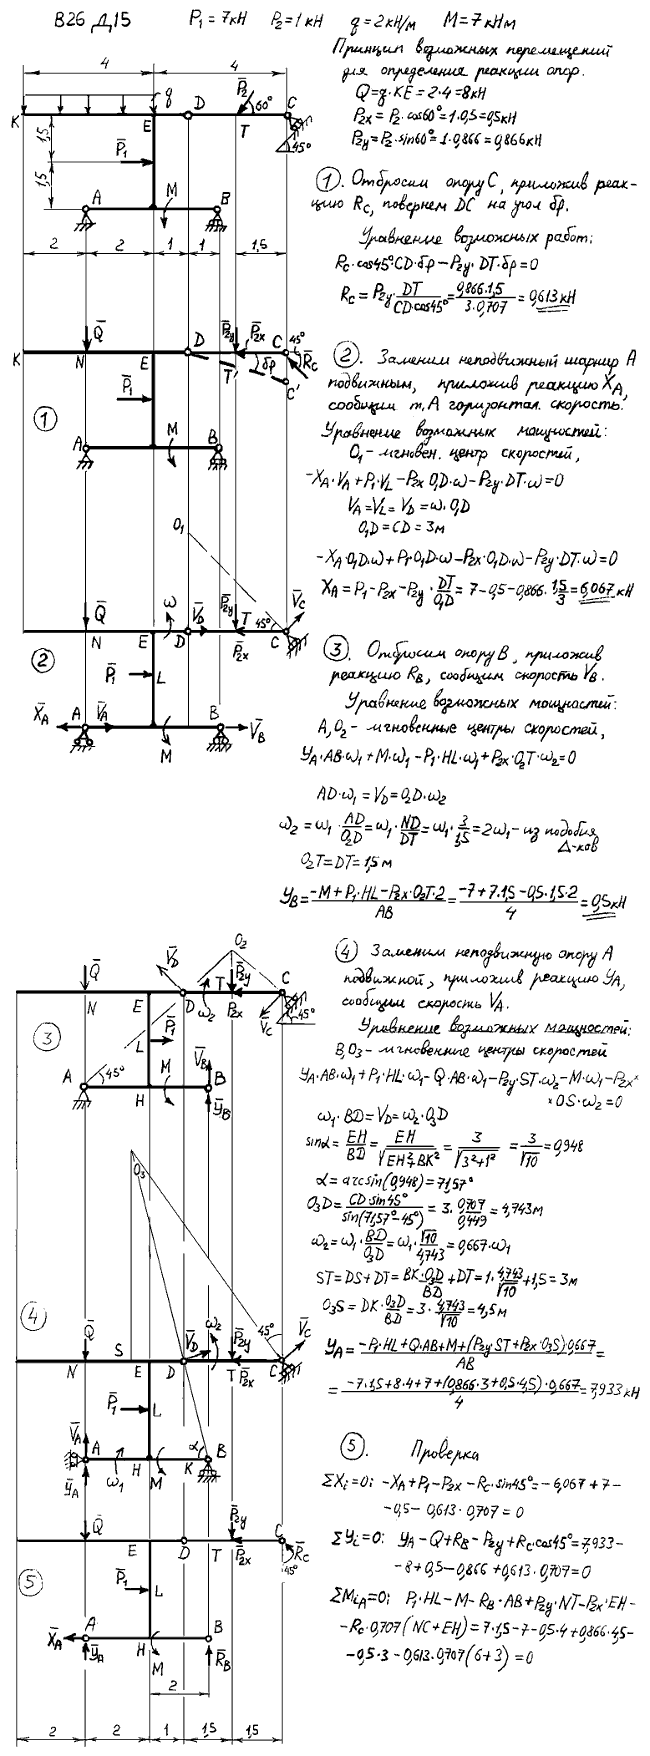 В26 Д15 P₁ = 7кН P₂ = 1 кН q = 2кН/м M = 7кНм
Принцип возможных перемещений
для определения реакции опор.
Q = q·KE = 2·4 = 8кН
P₂ₓ = P₂·cos60° = 1·0,5 = 0,5кН
P₂y = P₂·sin60° = 1·0,866 = 0,866кН
4 4
q D P̄₂ 60° C
K E T 45°
1,5 P̄₁
1,5 A M B
2 2 1 1 1,5
① . Отбросим опору С, приложив реак-
цию Rc, повернем DC на угол δφ.
Уравнение возможных работ:
Rc·cos45°·CD·δφ − P₂y·DT·δφ = 0
Rc = P₂y· DT/(CD·cos45°) = 0,866·1,5/(3·0,707) = 0,613 кН
Q̄ D P̄₂y P̄₂x C 45°
K N E T δφ R̄c
C'
① P̄₁
A M B
② . Заменим неподвижный шарнир А
подвижным, приложив реакцию X_A,
сообщим т. А горизонтал. скорость.
Уравнение возможных мощностей:
O₁ - мгновен. центр скоростей,
−X_A·V_A + P₁·V_L − P₂x·O₁D·ω − P₂y·DT·ω = 0
V_A = V_L = V_D = ω·O₁D
O₁D = CD = 3м
−X_A·O₁D·ω + P₁·O₁D·ω − P₂x·O₁D·ω − P₂y·DT·ω = 0
X_A = P₁ − P₂x − P₂y· DT/O₁D = 7 − 0,5 − 0,866· 1,5/3 = 6,067 кН
O₁
Q̄ ω V̄_D P̄₂y T 45° V̄c
N E D P̄₂x C
② P̄₁ L
X̄_A A V̄_A M B V̄_B
③ . Отбросим опору B, приложив
реакцию R_B, сообщим скорость V_B.
Уравнение возможных мощностей:
A, O₂ - мгновенные центры скоростей,
Y_A·AB·ω₁ + M·ω₁ − P₁·HL·ω₁ + P₂x·O₂T·ω₂ = 0
AD·ω₁ = V_D = O₂D·ω₂
ω₂ = ω₁· AD/O₂D = ω₁· ND/DT = ω₁· 3/1,5 = 2ω₁ - из подобия
Δ-ков
O₂T = DT = 1,5 м
Y_B = (−M + P₁·HL − P₂x·O₂T·2)/AB = (−7 + 7·1,5 − 0,5·1,5·2)/4 = 0,5 кН
O₂
Q̄ V̄_D T P̄₂y C
N E D ω₂ P̄₂x V̄c 45°
③ L P̄₁
A 45° M V̄_B B
H Ȳ_B
④ Заменим неподвижную опору А
подвижной, приложив реакцию Y_A,
сообщим скорость V_A.
Уравнение возможных мощностей:
B, O₃ - мгновенные центры скоростей
Y_A·AB·ω₁ + P₁·HL·ω₁ − Q·AB·ω₁ − P₂y·ST·ω₂ − M·ω₁ − P₂x×
×OS·ω₂ = 0
ω₁·BD = V_D = ω₂·O₃D
sinα = EH/BD = EH/√(EH²+BK²) = 3/√(3²+1²) = 3/√10 = 0,948
α = arcsin(0,948) = 71,57°
O₃D = CD·sin45°/sin(71,57°−45°) = 3· 0,707/0,449 = 4,743м
ω₂ = ω₁· BD/O₃D = ω₁· √10/4,743 = 0,667·ω₁
ST = DS + DT = BK·O₃D/BD + DT = 1· 4,743/√10 + 1,5 = 3м
O₃S = DK· O₃D/BD = 3· 4,743/√10 = 4,5м
Y_A = (−P₁·HL + Q·AB + M + (P₂y·ST + P₂x·O₃S)·0,667)/AB =
= (−7·1,5 + 8·4 + 7 + (0,866·3 + 0,5·4,5)·0,667)/4 = 7,933 кН
O₃
④ Q̄ S V̄_D ω₂ P̄₂y 45° V̄c
N E D T P̄₂x C
P̄₁ L
V̄_A A α B
Ȳ_A ω₁ H M K
⑤ . Проверка
ΣXi = 0; −X_A + P₁ − P₂x − Rc·sin45° = −6,067 + 7 −
−0,5 − 0,613·0,707 = 0
ΣYi = 0: Y_A − Q + R_B − P₂y + Rc·cos45° = 7,933 −
−8 + 0,5 − 0,866 + 0,613·0,707 = 0
ΣM_iA = 0; P₁·HL − M − R_B·AB + P₂y·NT − P₂x·EH −
−Rc·0,707(NC + EH) = 7·1,5 − 7 − 0,5·4 + 0,866·4,5 −
−0,5·3 − 0,613·0,707(6 + 3) = 0
Q̄ P̄₂y C
E D T P̄₂x 45° R̄c
⑤ P̄₁ L
X̄_A A H B
Ȳ_A M R̄_B
2
2 2 1 1,5 1,5